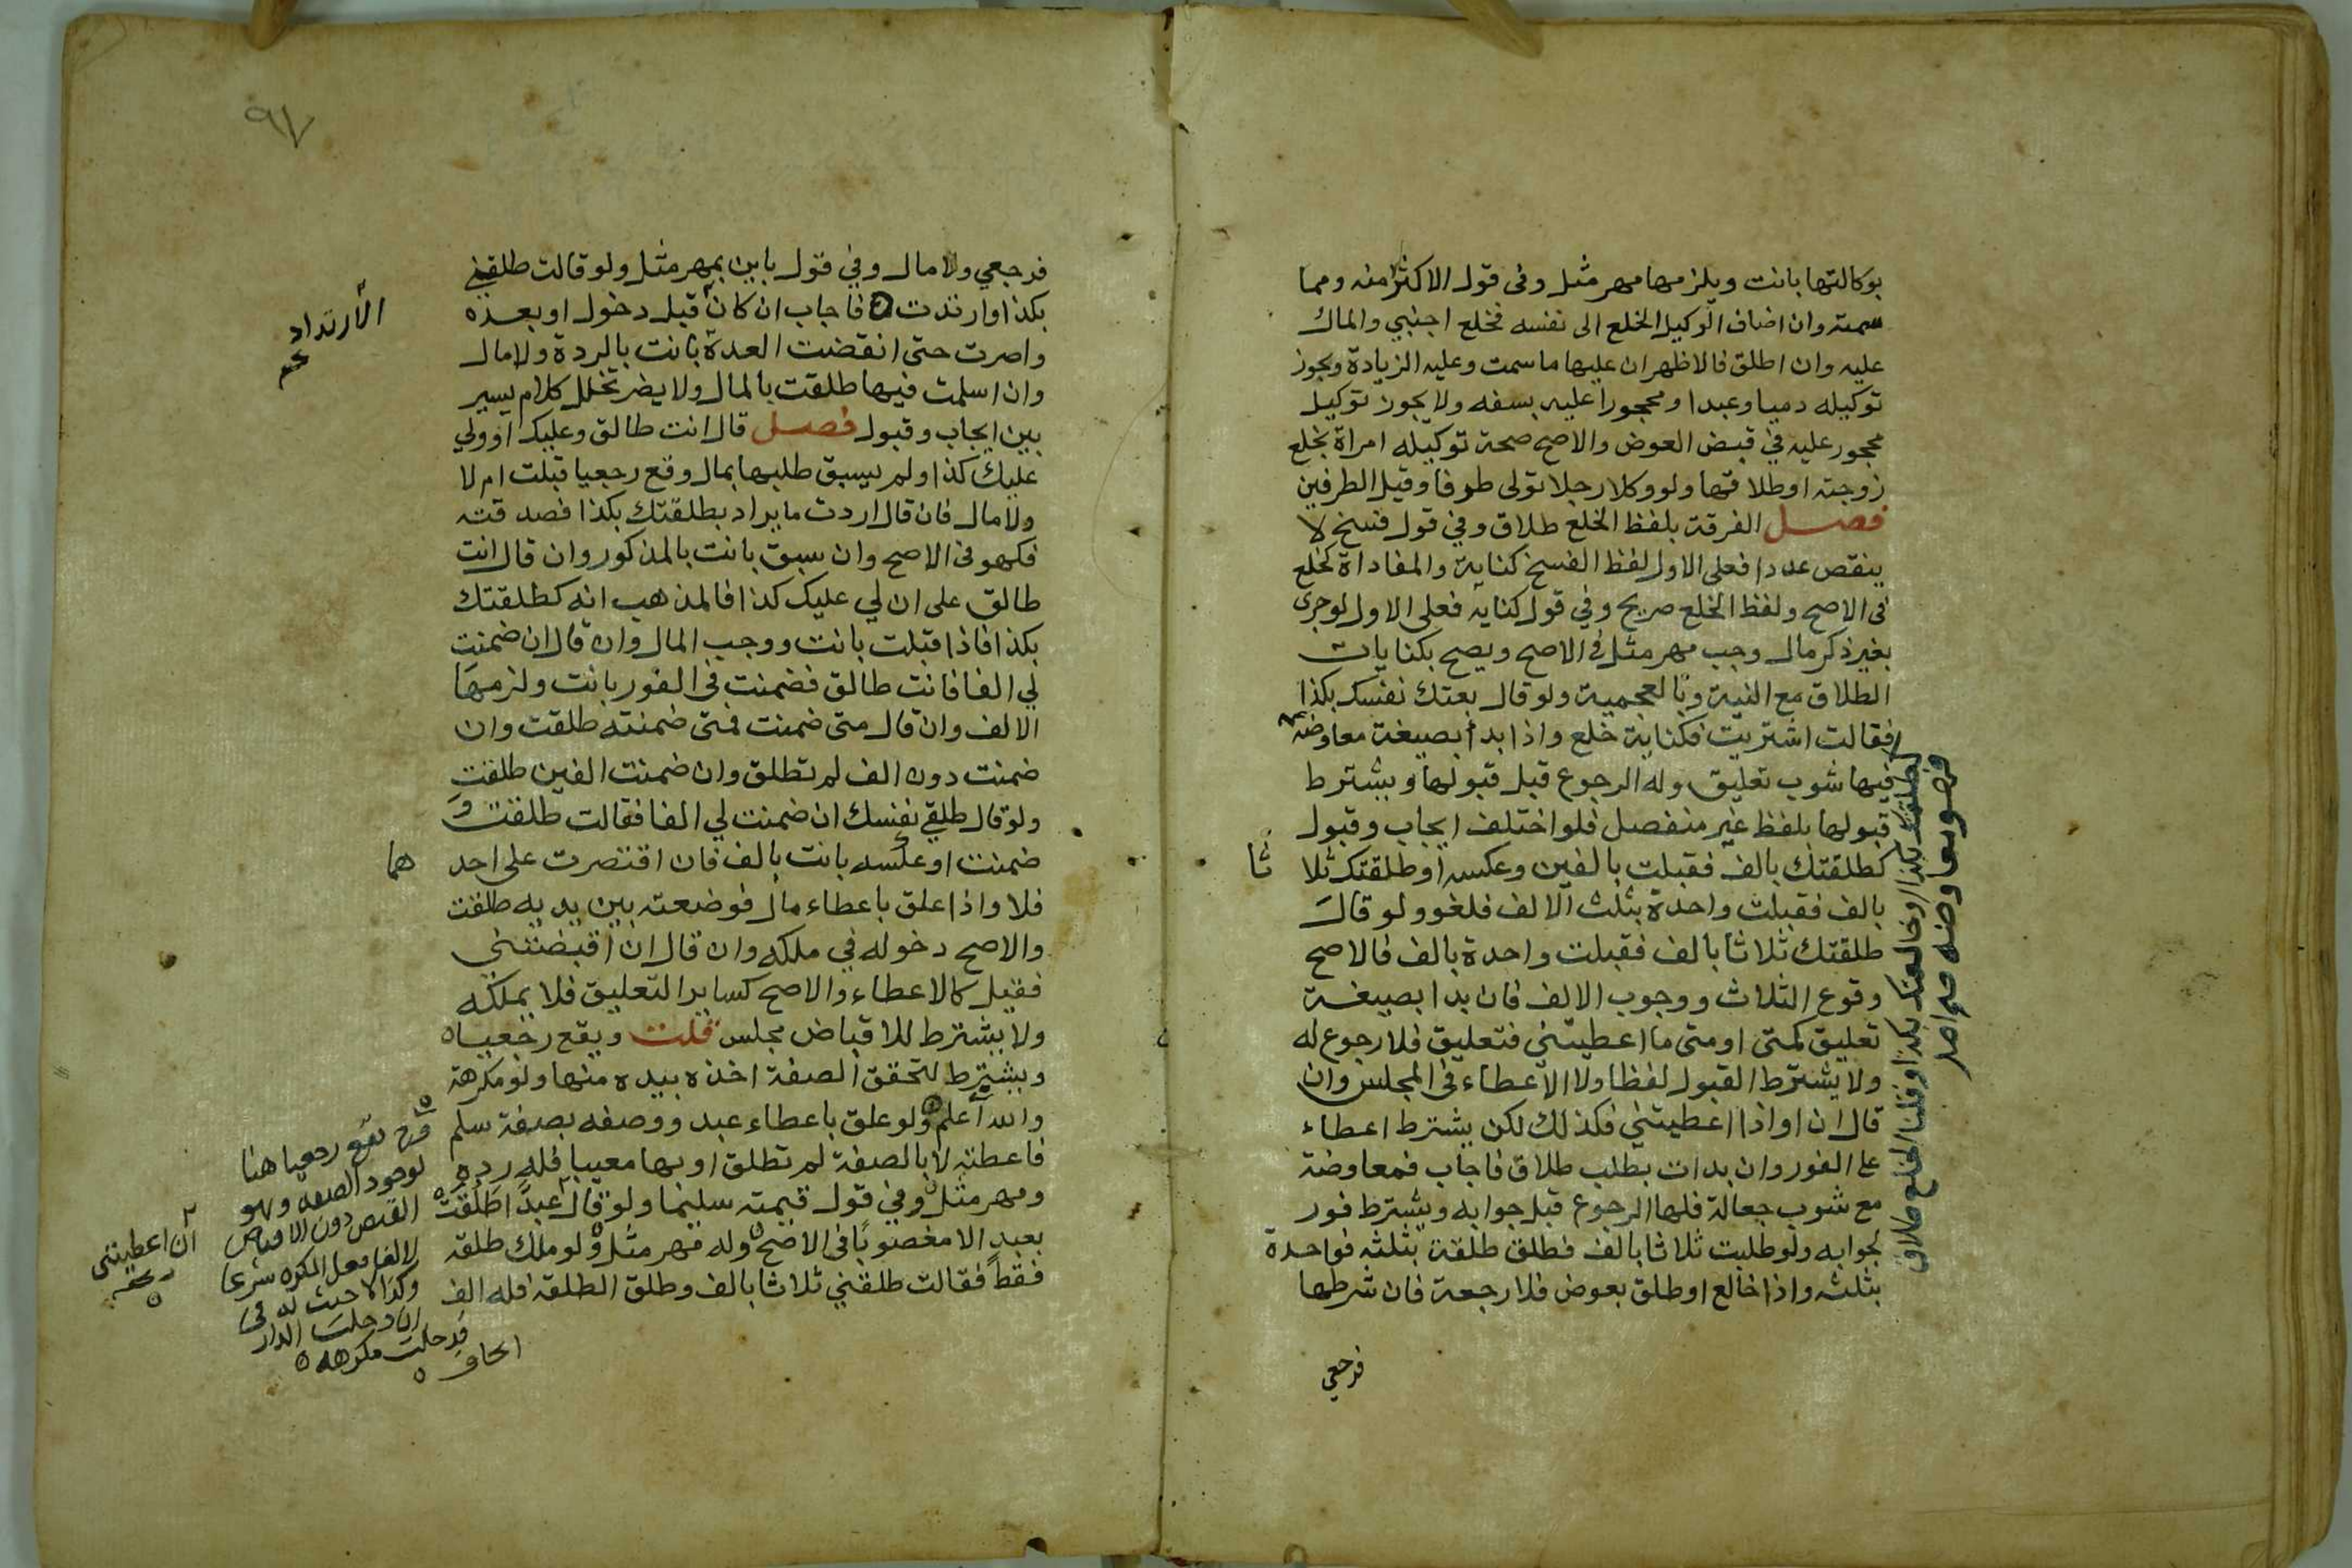 بوكالتها بانت ويلزمها مهر مثل وفى قول الاكثر منه ومما
سمته وان اضاف الوكيل الخلع الى نفسه فخلع اجنبي والمال
عليه وان اطلق فالاظهر ان عليها ما سمت وعليه الزيادة ويجوز
توكيله دميا وعبدا ومحجورا عليه بسفه ولا يجوز توكيل
محجور عليه في قبض العوض والاصح صحة توكيله امراة بخلع
زوجته او طلاقها ولو وكلا رجلا تولى طرفا وقيل الطرفين
فصل الفرقة بلفظ الخلع طلاق وفي قول فسخ لا
ينقص عددا فعلى الاول لفظ الفسخ كناية والمفاداة كخلع
فى الاصح ولفظ الخلع صريح وفي قول كناية فعلى الاول لو جرى
بغير ذكر مال وجب مهر مثل فى الاصح ويصح بكنايات
الطلاق مع النية وبالعجمية ولو قال بعتك نفسك بكذا
فقالت اشتريت فكناية خلع واذا بدا بصيغة معاوضة
فيها شوب تعليق وله الرجوع قبل قبولها ويشترط
قبولها بلفظ غير منفصل فلو اختلف ايجاب وقبول
كطلقتك بالف فقبلت بالفين وعكسه او طلقتك ثلا ثا
بالف فقبلت واحدة بثلث الالف فلغو ولو قال
طلقتك ثلاثا بالف فقبلت واحدة بالف فالاصح
وقوع الثلاث ووجوب الالف فان بدا بصيغة
تعليق كمتى او متى ما اعطيتني فتعليق فلا رجوع له
ولا يشترط القبول لفظا ولا الاعطاء فى المجلس وان
قال ان او اذا اعطيتني فكذلك لكن يشترط اعطاء
على الفور وان بدات بطلب طلاق فاجاب فمعاوضة
مع شوب جعالة فلها الرجوع قبل جوابه ويشترط فور
لجوابه ولو طلبت ثلاثا بالف فطلق طلقة بثلثه فواحدة
بثلثه واذا خالع او طلق بعوض فلا رجعة فان شرطها
فرجعي
كطلقتك بكذا او خالعتك بكذا وقلنا الخلع طلاق
٩٧
فرجعي ولا مال وفي قول باين بمهر مثل ولو قالت طلقني
بكذا او ارتدت فاجاب ان كان قبل دخول او بعده
واصرت حتى انقضت العدة بانت بالردة ولا مال
وان اسلمت فيها طلقت بالمال ولا يضر تخلل كلام يسير
بين ايجاب وقبول فصل قال انت طالق وعليك او ولي
عليك كذا ولم يسبق طلبها بمال وقع رجعيا قبلت ام لا
ولا مال فان قال اردت ما يراد بطلقتك بكذا فصدقته
فكهو فى الاصح وان سبق بانت بالمذكور وان قال انت
طالق على ان لي عليك كذا فالمذهب انه كطلقتك
بكذا فاذا قبلت بانت ووجب المال وان قال ان ضمنت
لي الفا فانت طالق فضمنت فى الفور بانت ولزمها
الالف وان قال متى ضمنت فمتى ضمنته طلقت وان
ضمنت دون الف لم تطلق وان ضمنت الفين طلقت
ولو قال طلقي نفسك ان ضمنت لي الفا فقالت طلقت و
ضمنت او عكسه بانت بالف فان اقتصرت على احد هما
فلا واذا علق باعطاء مال فوضعته بين يديه طلقت
والاصح دخوله في ملكه وان قال ان اقبضتني
فقيل كالاعطاء والاصح كساير التعليق فلا يملكه
ولا يشترط للاقباض مجلس قلت ويقع رجعيا
ويشترط لتحقق الصفة اخذه بيده منها ولو مكرهة
والله اعلم ولو علق باعطاء عبد ووصفه بصفة سلم
فاعطته لا بالصفة لم تطلق او بها معيبا فله رده
ومهر مثل وفي قول قيمته سليما ولو قال عبدا طلقت
بعبد الا مغصوبا فى الاصح وله مهر مثل ولو ملك طلقة
فقط فقالت طلقني ثلاثا بالف وطلق الطلقة فله الف
الارتداد
يقع رجعيا هنا
لوجود الصفة وهو
القبض دون الاقباض
لالغا فعل المكره شرعا
وكذا لا حنث له فى
ان دخلت الدار
فدخلت مكرهه
ان اعطيتنى